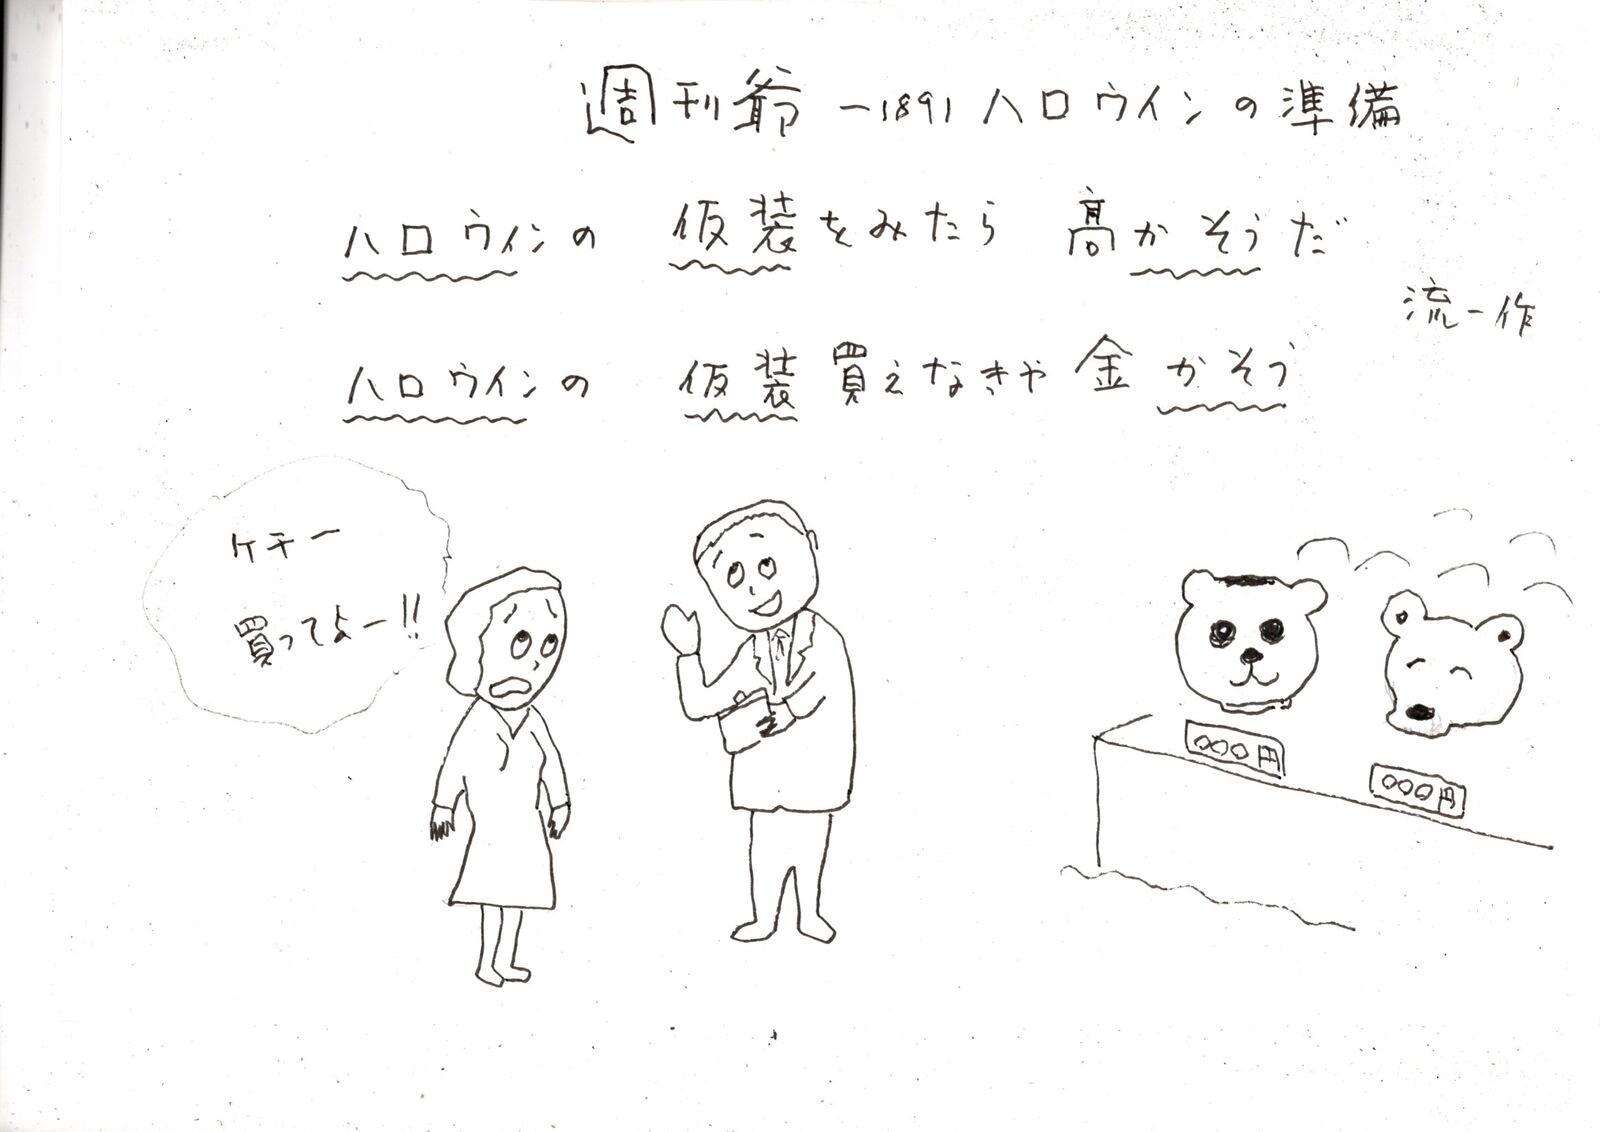 週刊爺－1891 ハロウインの準備
ハロウインの 仮装をみたら 高かそうだ
流一作
ハロウインの 仮装買えなきゃ 金かそう
ケチー
買ってよー!!
○○○円
○○○円